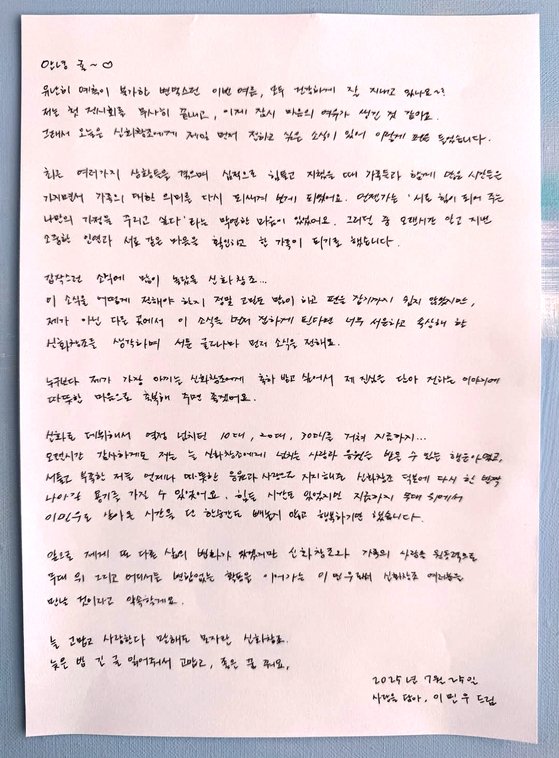 안녕 귤~♡
유난히 예측이 불가한 변덕스런 이번 여름, 모두 건강하게 잘 지내고 있나요~?
저는 첫 전시회를 무사히 끝내고, 이제 잠시 마음의 여유가 생긴 것 같아요.
그래서 오늘은 신화창조에게 제일 먼저 전하고 싶은 소식이 있어 이렇게 펜을 들었습니다.
최근 여러가지 상황들을 겪으며 심적으로 힘들고 지쳤을 때 가족들과 함께 많은 시간들을
가지면서 가족의 대한 의미를 다시 되새기게 되었어요. 언젠가는 '서로 힘이 되어 주는
나만의 가정을 꾸리고 싶다'라는 막연한 마음이 있었어요. 그러던 중 오랜시간 알고 지낸
소중한 인연과 서로 같은 마음을 확인하고 한 가족이 되기로 했습니다.
갑작스런 소식에 많이 놀랐을 신화창조...
이 소식을 어떻게 전해야 하지 정말 고민도 많이 하고 펜을 잡기까지 쉽지 않았지만,
제가 아닌 다른 곳에서 이 소식을 먼저 전하게 된다면 너무 서운하고 속상해 할
신화창조를 생각하며 서툰 글로나마 먼저 소식을 전해요.
누구보다 제가 가장 아끼는 신화창조에게 축하 받고 싶어서 제 진심을 담아 전하는 이야기에
따뜻한 마음으로 축복해 주면 좋겠어요.
신화로 데뷔해서 열정 넘치던 10대, 20대, 30대를 거쳐 지금까지...
오랜시간 감사하게도 저는 늘 신화창조에게 넘치는 사랑과 응원을 받을 수 있는 행운아였고,
서툴고 부족한 저를 언제나 따뜻한 응원과 사랑으로 지지해준 신화창조 덕분에 다시 한 발짝
나아갈 용기를 가질 수 있었어요. 힘든 시간도 있었지만 지금까지 무대 위에서
이민우로 살아온 시간을 단 한순간도 빼놓지 않고 행복하기만 했습니다.
앞으로 제게 또 다른 삶의 변화가 생겼지만 신화창조와 가족의 사랑을 원동력으로
무대 위 그리고 어디서든 변함없는 활동을 이어가는 이민우로 신화창조 여러분을
만날 것이라고 약속할게요.
늘 고맙고 사랑한다 말해도 모자란 신화창조.
늦은 밤 긴 글 읽어줘서 고맙고, 좋은 꿈 꿔요.
2025년 7월 25일
사랑을 담아, 이민우 드림